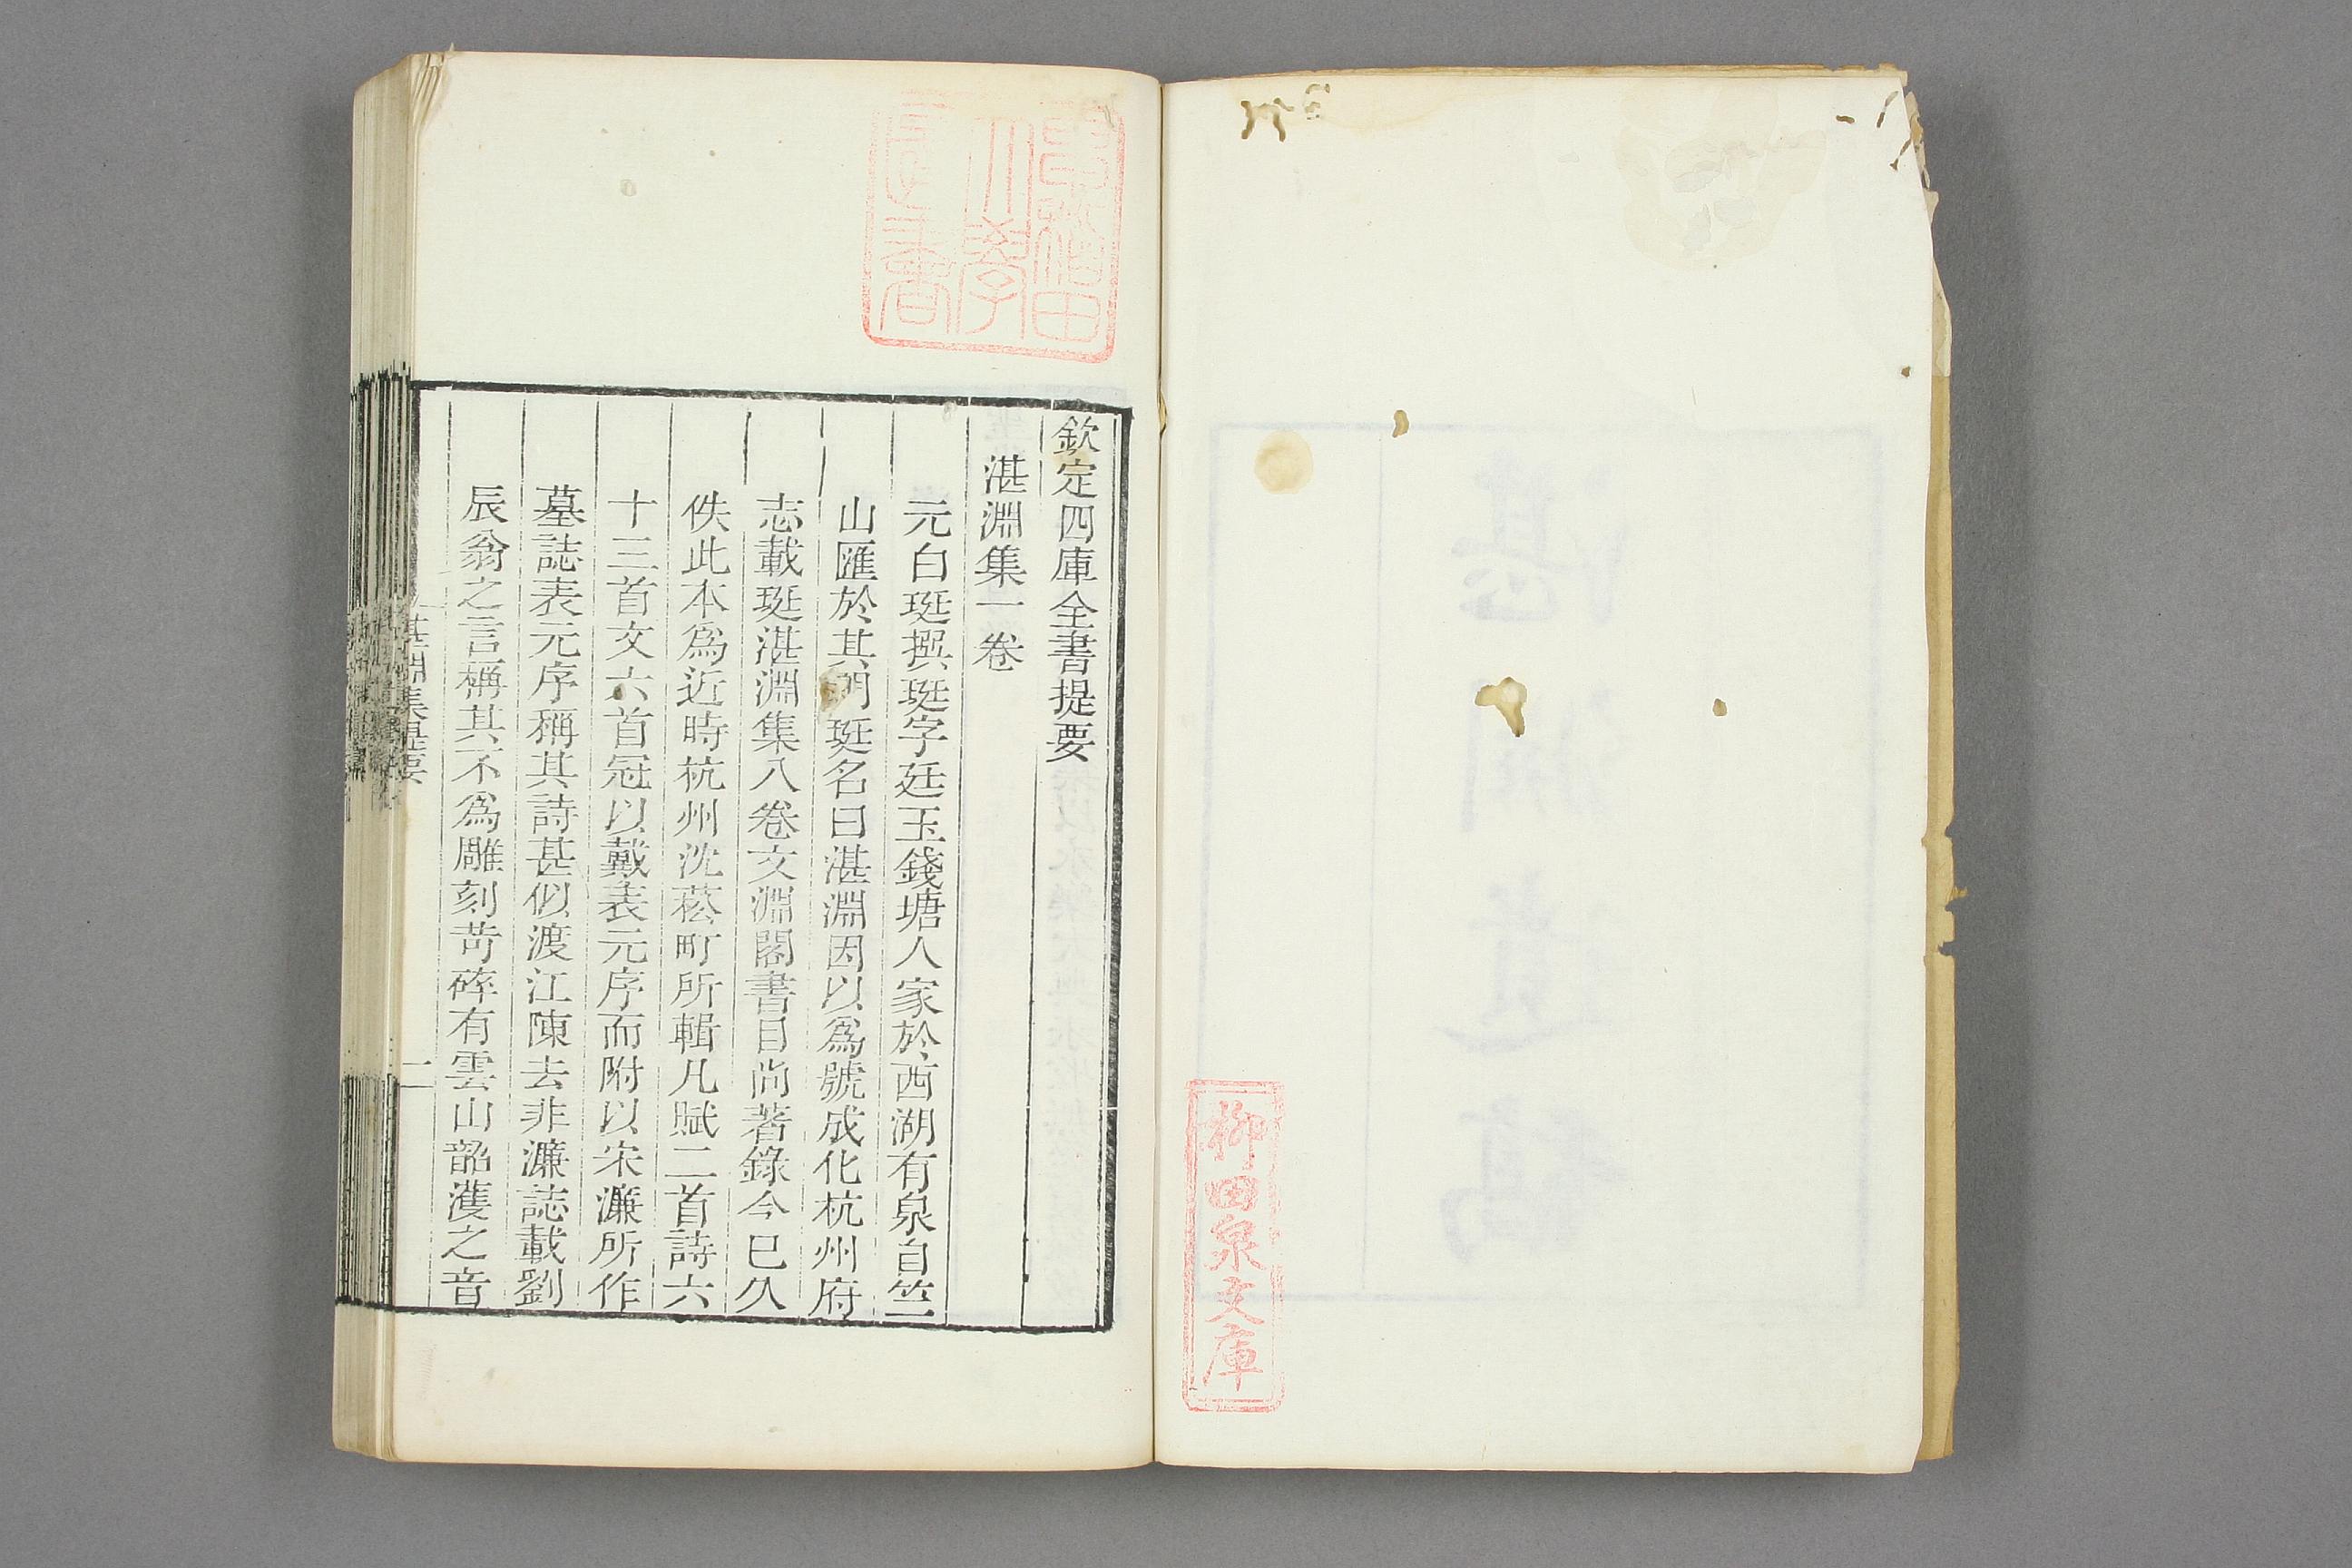 柳田泉文庫
早稲田
大學
圖書
欽定四庫全書提要
湛淵集一卷
元白珽撰珽字廷玉錢塘人家於西湖有泉自竺
山匯於其 珽名曰湛淵因以爲號成化杭州府
志載珽湛淵集八卷文淵閣書目尚著錄今已久
佚此本爲近時杭州沈菘町所輯凡賦二首詩六
十三首文六首冠以戴表元序而附以宋濂所作
墓誌表元序稱其詩甚似渡江陳去非濂誌載劉
辰翁之言稱其不爲雕刻苛碎有雲山韶濩之音
湛淵集提要
二